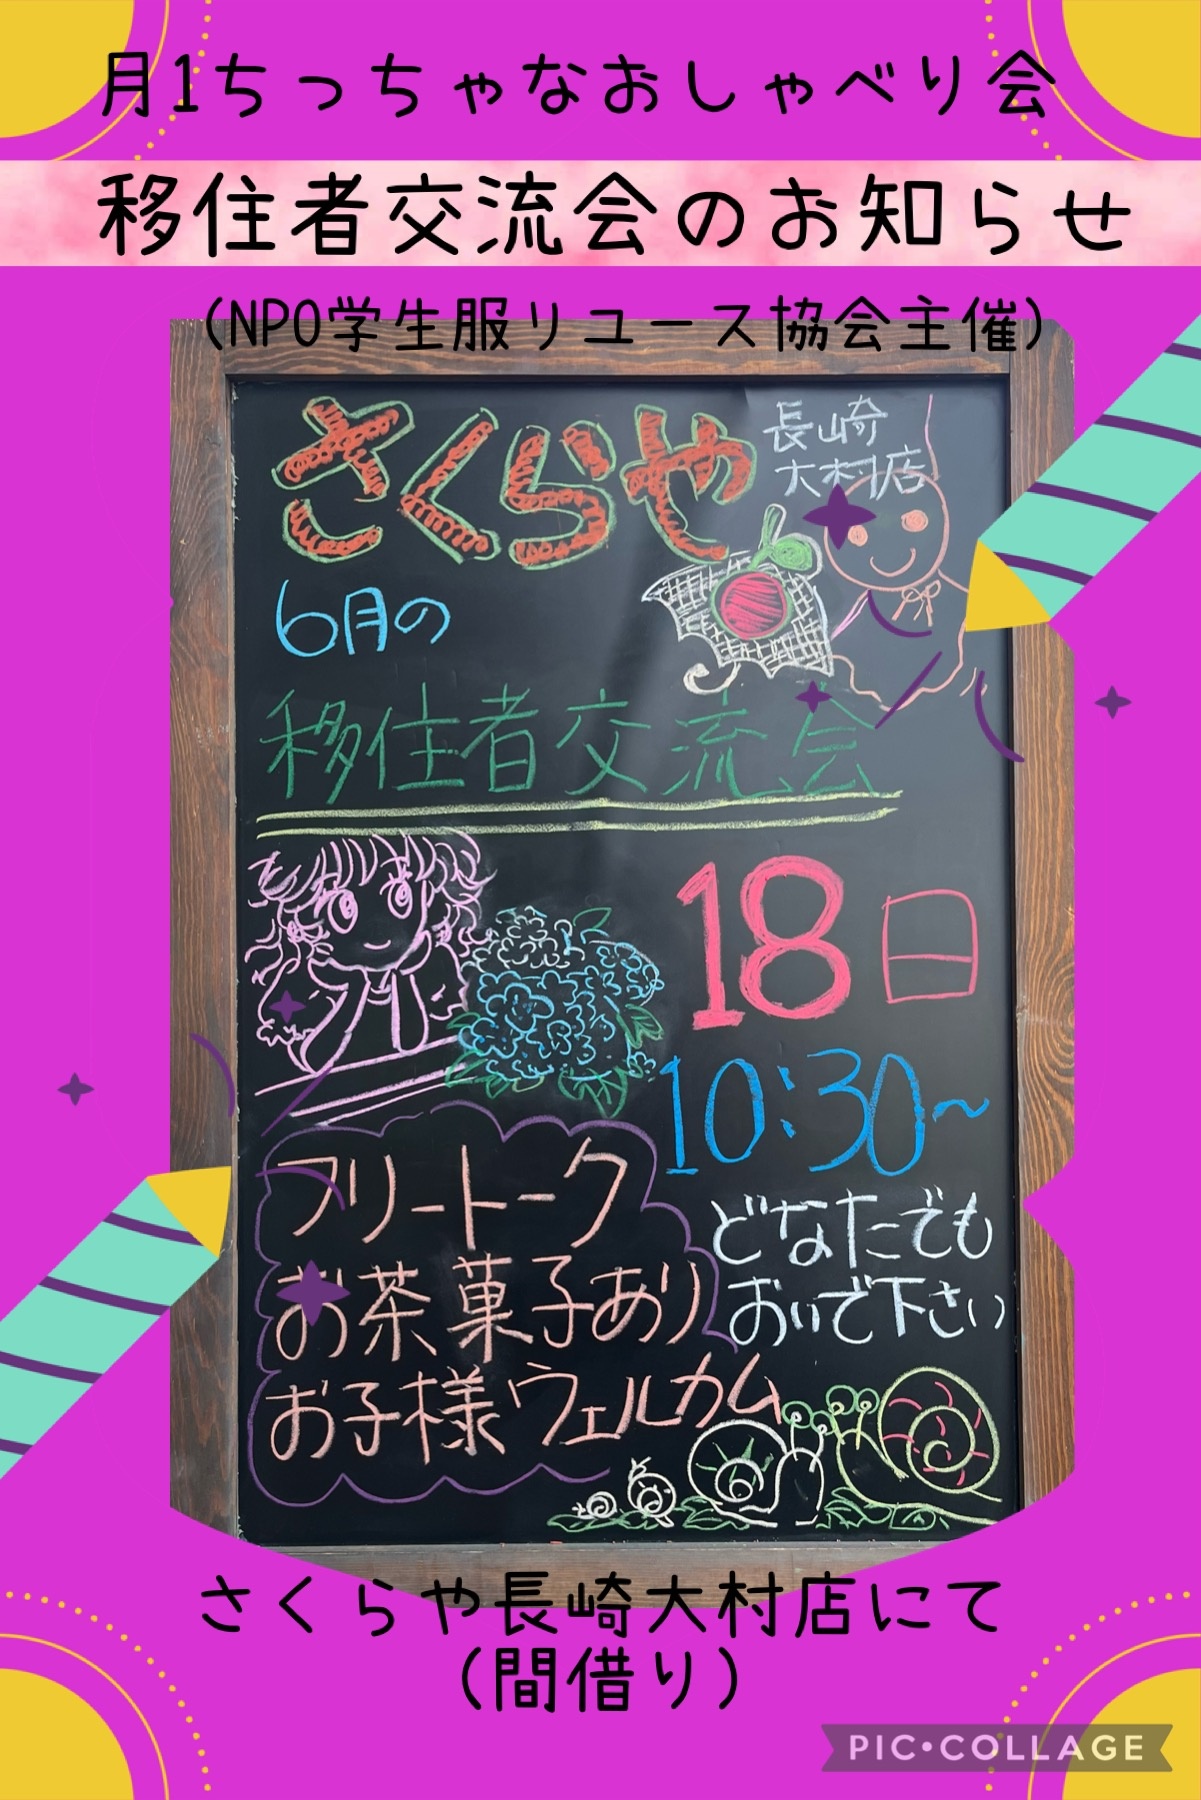 月1ちっちゃなおしゃべり会
移住者交流会のお知らせ
(NPO学生服リユース協会主催)
さくらや
長崎
大村店
6月の
移住者交流会
18日
10:30~
フリートーク
お茶菓子あり
お子様ウェルカム
どなたでも
おいで下さい
さくらや長崎大村店にて
(間借り)
PIC•COLLAGE